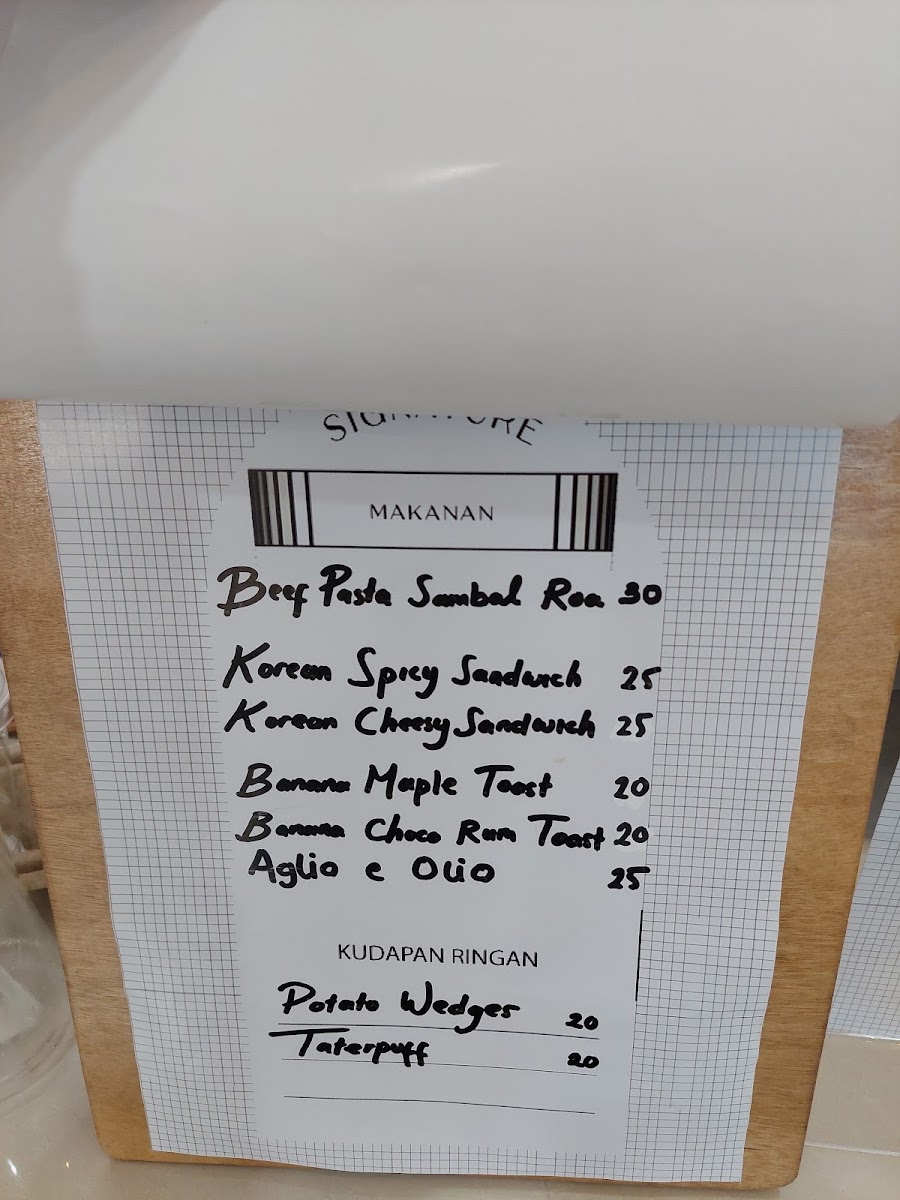 SIGNATURE
MAKANAN
Beef Pasta Sambal Roa 30
Korean Spicy Sandwich 25
Korean Cheesy Sandwich 25
Banana Maple Toast 20
Banana Choco Rum Toast 20
Aglio e Olio 25
KUDAPAN RINGAN
Potato Wedges 20
Taterpuff 20